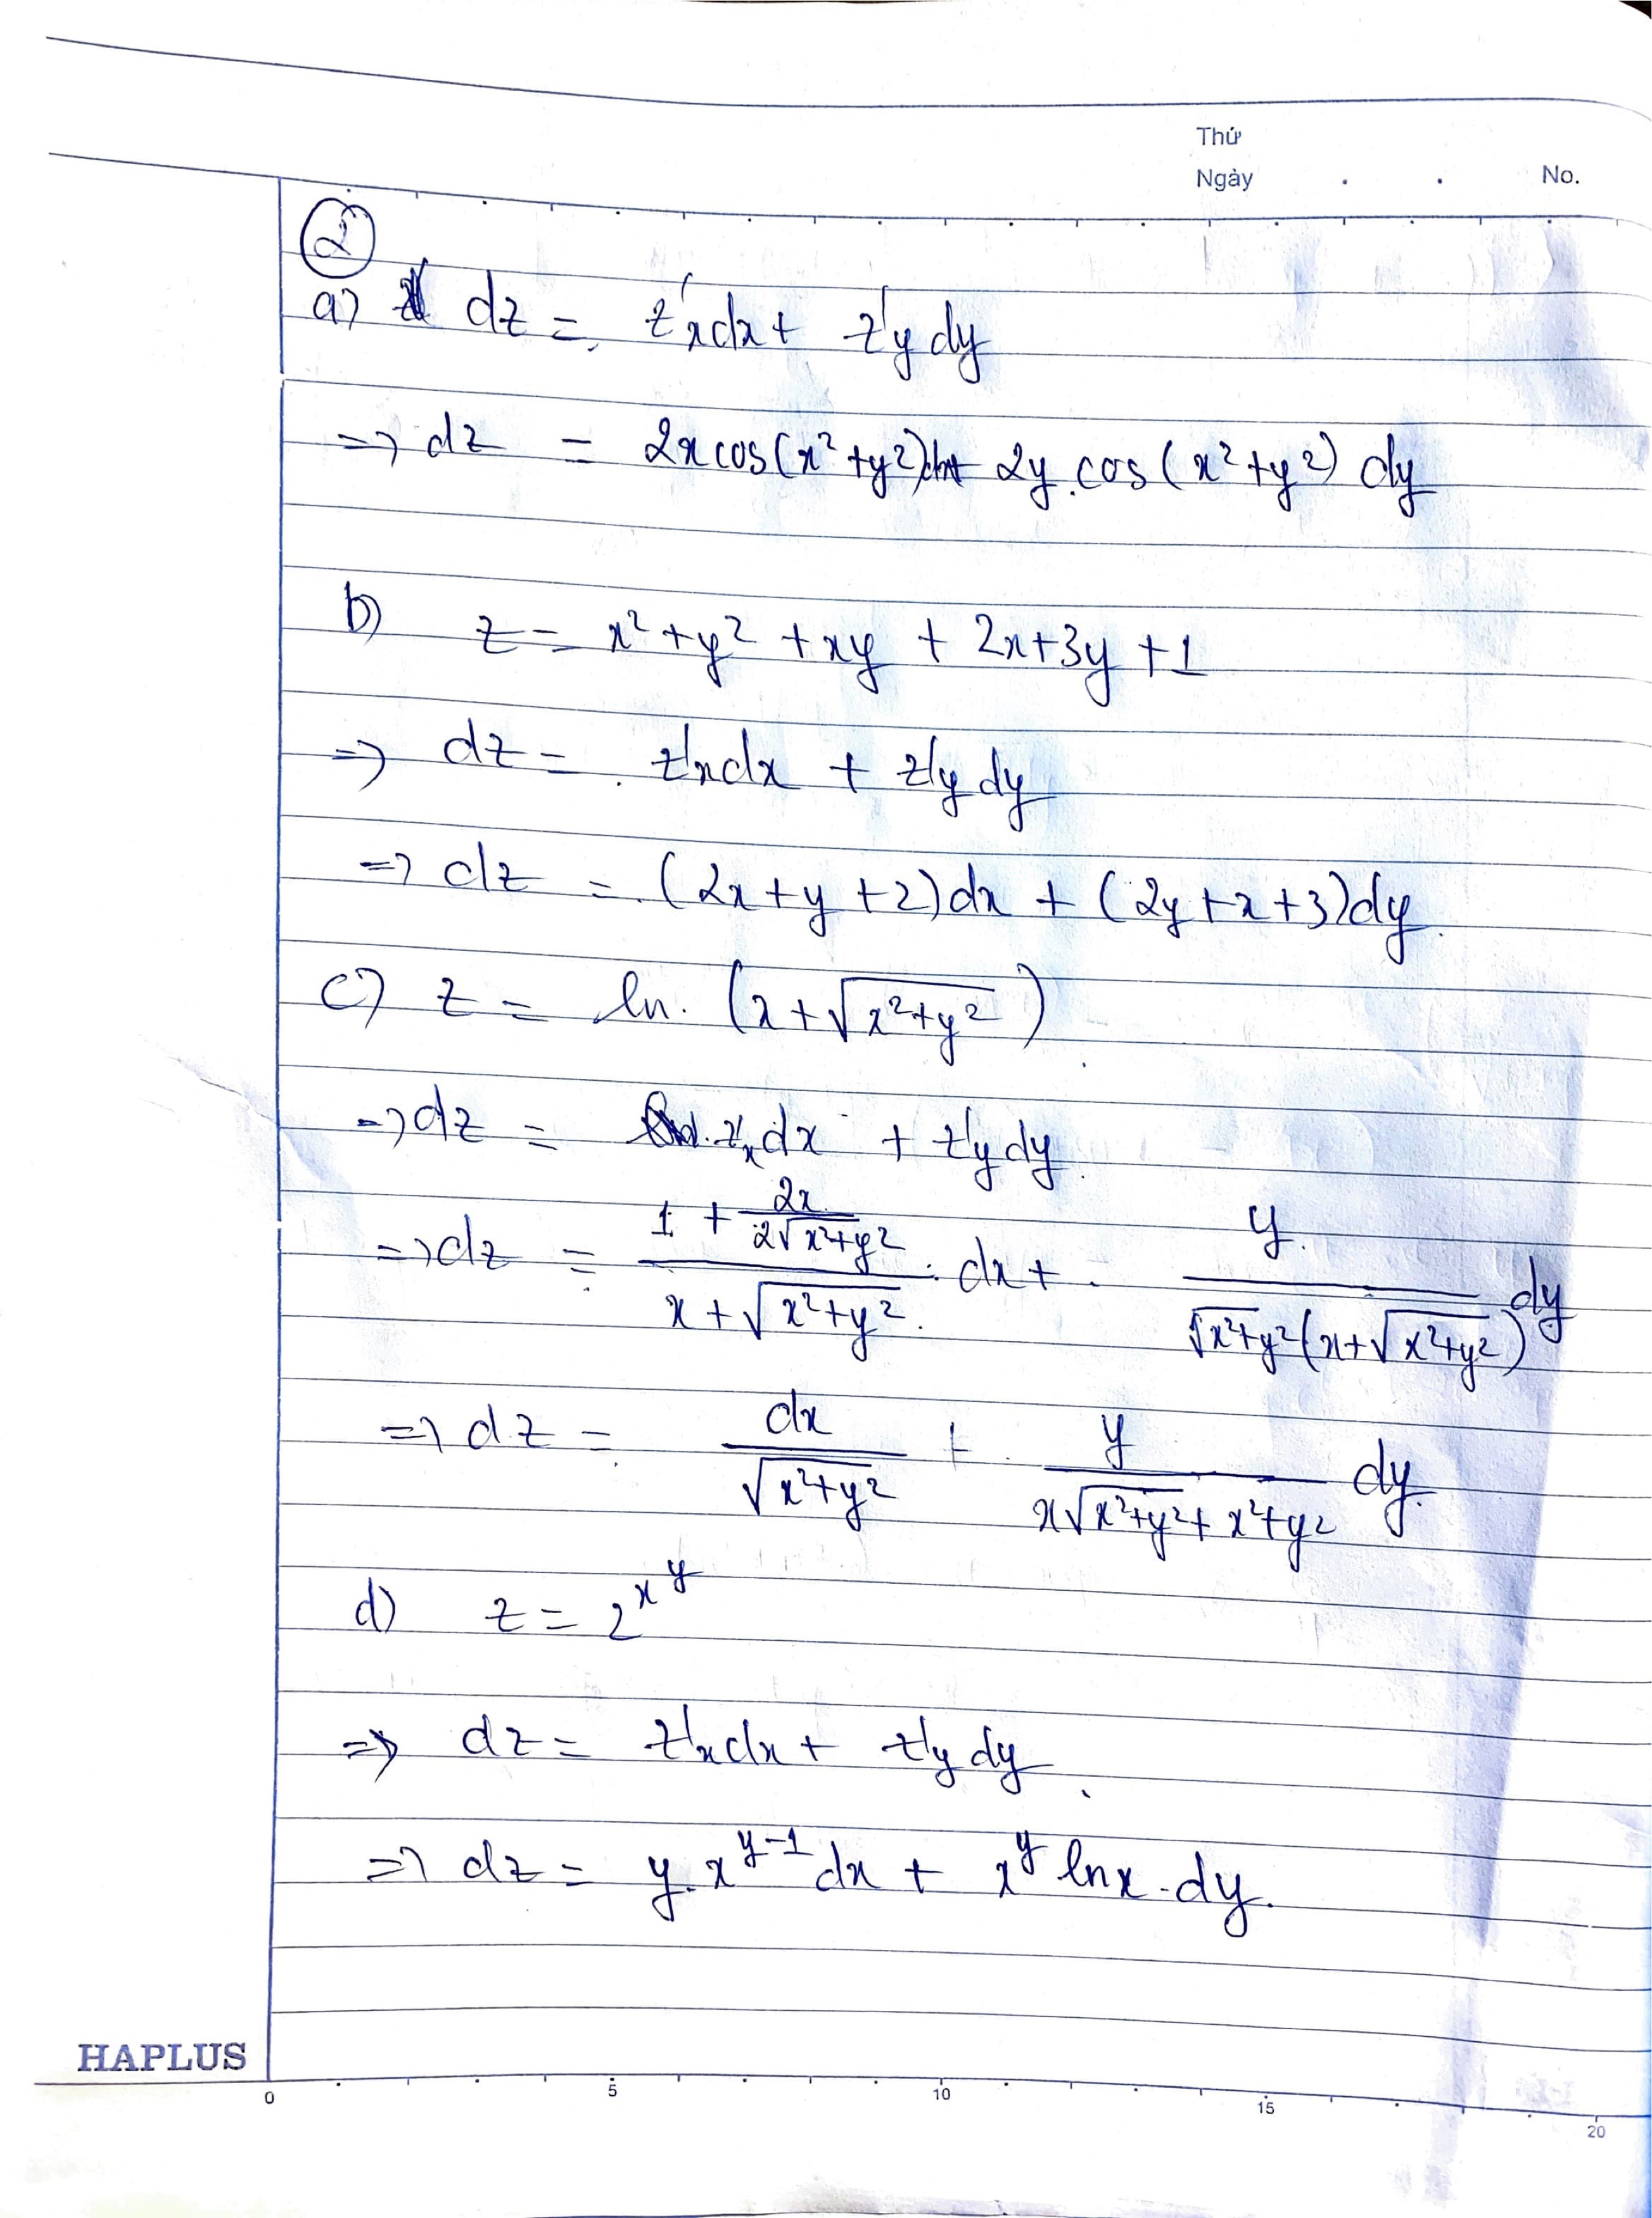 Thứ
Ngày . . No.
②
a) dz = z'x dx + z'y dy
=> dz = 2x cos(x² + y²) dx + 2y . cos (x² + y²) dy
b) z = x² + y² + xy + 2x + 3y + 1
=> dz = z'x dx + z'y dy
=> dz = (2x + y + 2) dx + (2y + x + 3) dy.
c) z = ln. (x + √(x² + y²))
=> dz = z'x dx + z'y dy.
=> dz = (1 + 2x/(2√(x² + y²)))/(x + √(x² + y²)) . dx + y/(√(x² + y²) (x + √(x² + y²))) dy
=> dz = dx/√(x² + y²) + y/(x√(x² + y²) + x² + y²) dy.
d) z = 2^x^y
=> dz = z'x dx + z'y dy.
=> dz = y.x^(y-1) dx + x^y lnx . dy.
HAPLUS
0 5 10 15 20